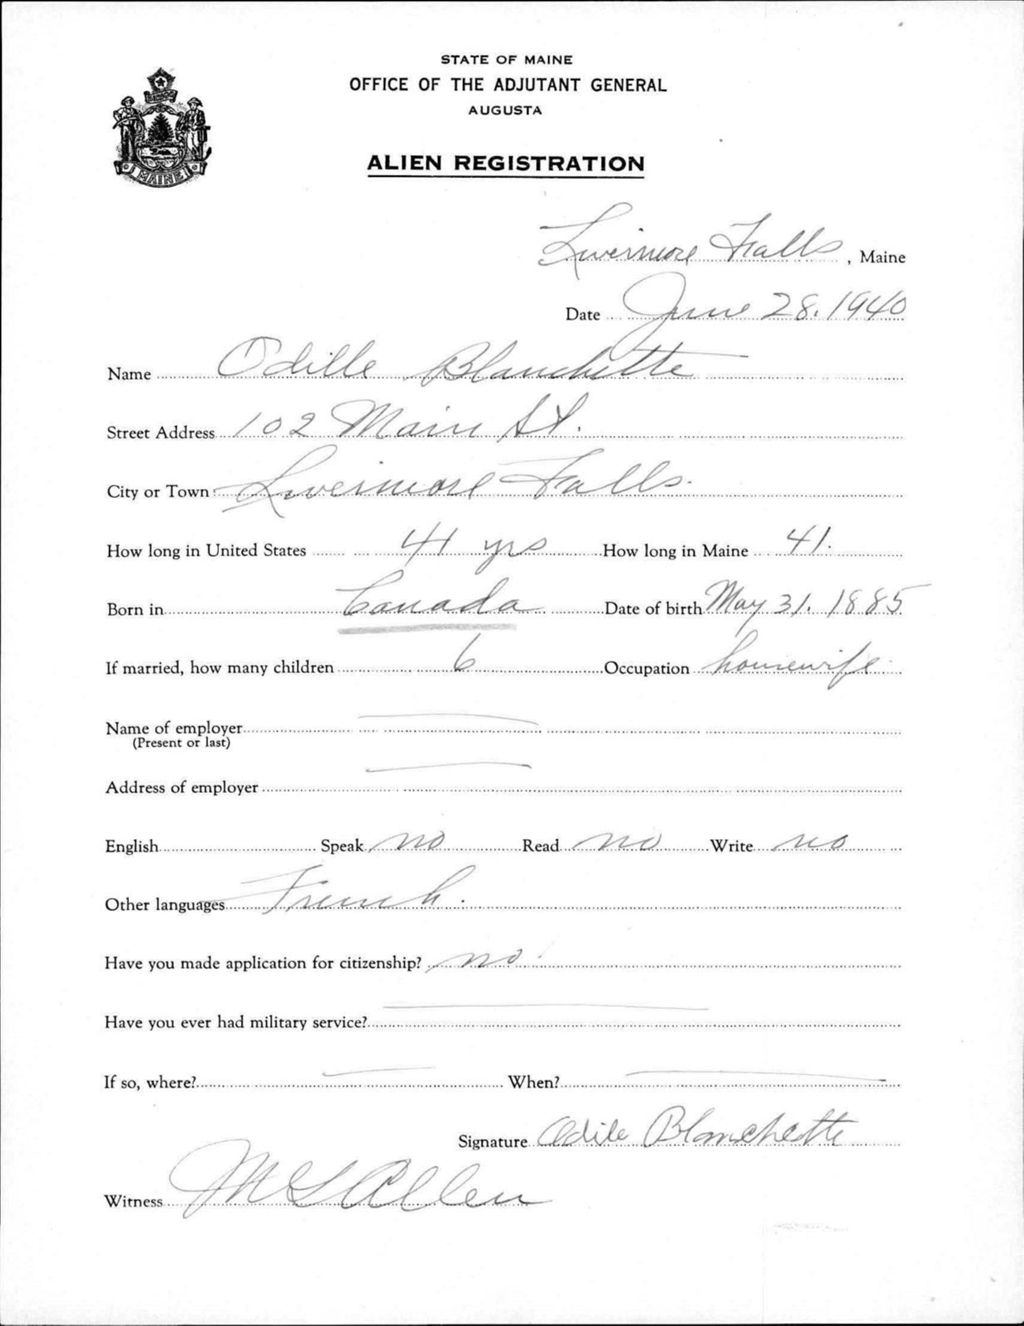 STATE OF MAINE
OFFICE OF THE ADJUTANT GENERAL
AUGUSTA
ALIEN REGISTRATION
MAINE
Livermore Falls, Maine
Date June 28. 1940
Name Odille Blanchette
Street Address 102 Main St.
City or Town Livermore Falls.
How long in United States 41 yrs How long in Maine 41.
Born in Canada Date of birth May 31. 1885
If married, how many children 6 Occupation housewife.
Name of employer
(Present or last)
Address of employer
English Speak no Read no Write no
Other languages French.
Have you made application for citizenship? no
Have you ever had military service?
If so, where? When?
Signature Odile Blanchette
Witness M S Allen